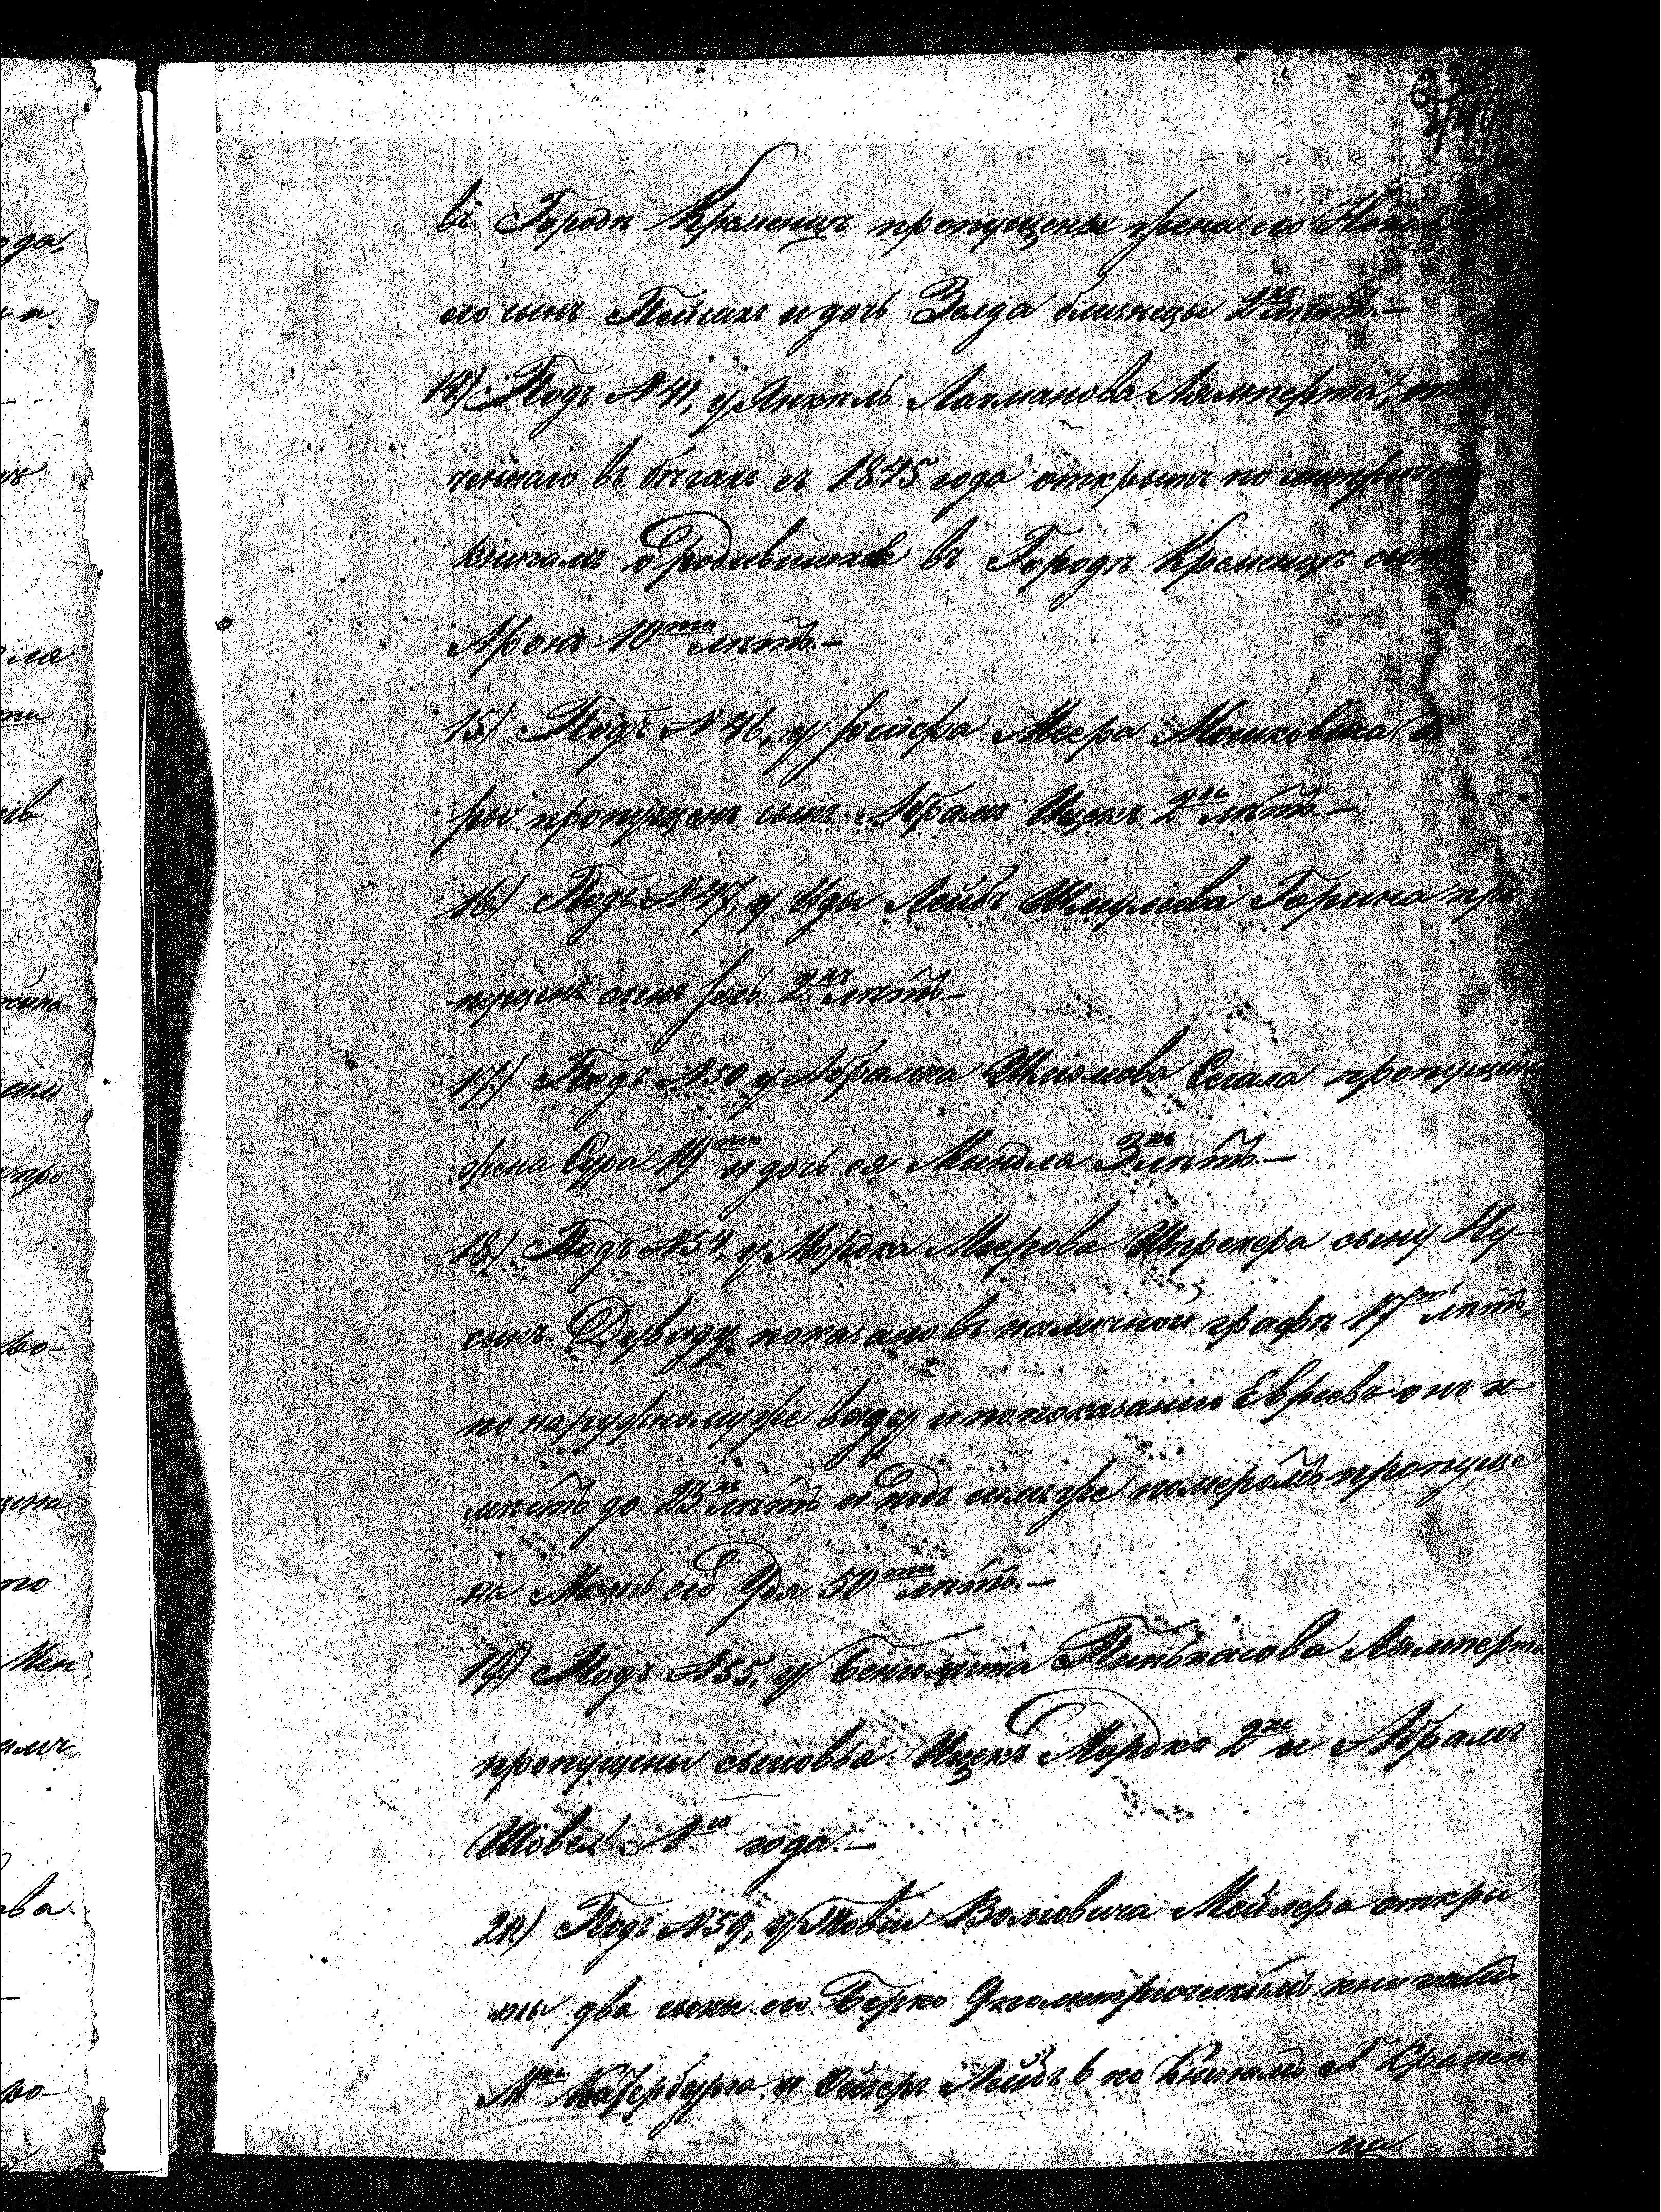 638
444
въ Городѣ Кременцѣ пропущены жена его Нена 29
его сынъ Пейсахъ и дочь Зелда близнецы 2хъ лѣтъ.—
14.) Подъ №41, у Янкель Лахманова Лямперта, отме
ченнаго въ бѣгахъ съ 1845 года открытъ по метричес
книгамъ о родившихся въ Городѣ Кременцѣ сынъ
Аронъ 10ти лѣтъ.—
15.) Подъ №46, у Іосифа Меера Мошковича
ры пропущенъ сынъ Абрамъ Ицекъ 2хъ лѣтъ.—
16.) Подъ №47, у Иды Лейбъ Шмулева Горина про
пущенъ сынъ Іось 2хъ лѣтъ.—
17.) Подъ №50 у Абрамка Шліомова Сегала пропущены
жена Сура 19ти и дочь ея Миндля 3хъ лѣтъ.—
18.) Подъ №54, у Мордка Меерова Шпрехера сыну Ну-
синъ Дувиду показано въ наличной графѣ 17ть лѣтъ,
по наружному же виду и по показанію Евреевъ онъ и-
мѣетъ до 23хъ лѣтъ и подъ симъ же номеромъ пропуще
на Мать его 50ти лѣтъ.—
19.) Подъ №55, у Беніомина Пинькасова Лямперта
пропущены сыновья Ицекъ Мордко 2хъ и Абрамъ
Шовель 1го года.—
20.) Подъ №59, у Товіи Волковича Мейлера откры
ты два сына его Берко 9 по метрическимъ книгамъ
М-ка Катербурга и Ойзеръ Лейбъ 6 по Книгамъ Г. Кремен
ца